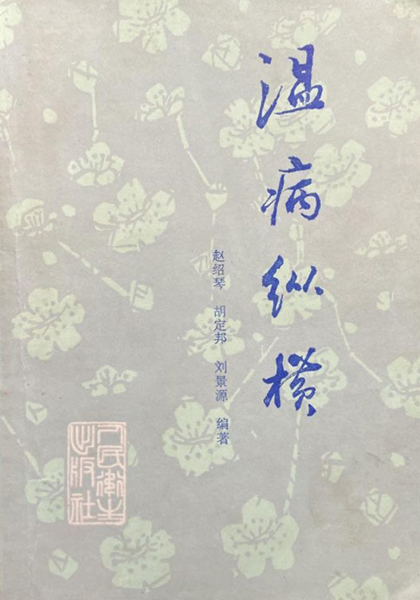 温病纵横
赵绍琴 胡定邦 刘景源 编著
人民卫生
出版社